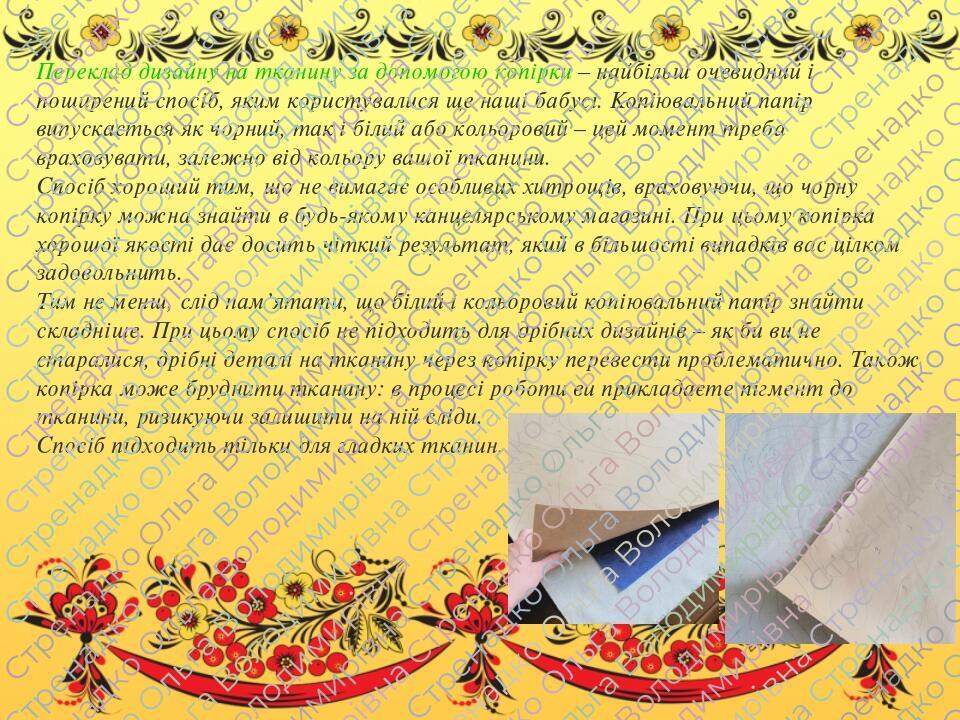 Переклад дизайну на тканину за допомогою копірки – найбільш очевидний і
поширений спосіб, яким користувалися ще наші бабусі. Копіювальний папір
випускається як чорний, так і білий або кольоровий – цей момент треба
враховувати, залежно від кольору вашої тканини.
Спосіб хороший тим, що не вимагає особливих хитрощів, враховуючи, що чорну
копірку можна знайти в будь-якому канцелярському магазині. При цьому копірка
хорошої якості дає досить чіткий результат, який в більшості випадків вас цілком
задовольнить.
Тим не менш, слід пам’ятати, що білий і кольоровий копіювальний папір знайти
складніше. При цьому спосіб не підходить для дрібних дизайнів – як би ви не
старалися, дрібні деталі на тканину через копірку перевести проблематично. Також
копірка може бруднити тканину: в процесі роботи ви прикладаєте пігмент до
тканини, ризикуючи залишити на ній сліди.
Спосіб підходить тільки для гладких тканин.
Стренадко Ольга Володимирівна